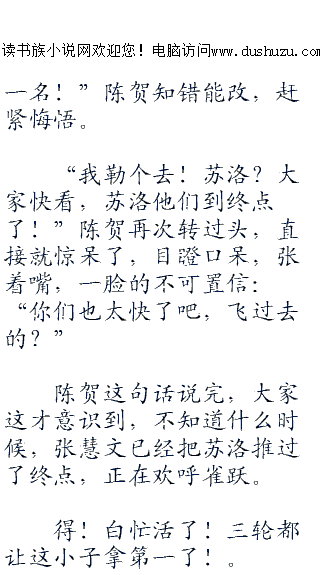 读书族小说网欢迎您！电脑访问www.dushuzu.com
一名！”陈贺知错能改，赶
紧悔悟。
“我勒个去！苏洛？大
家快看，苏洛他们到终点
了！”陈贺再次转过头，直
接就惊呆了，目瞪口呆，张
着嘴，一脸的不可置信：
“你们也太快了吧，飞过去
的？”
陈贺这句话说完，大家
这才意识到，不知道什么时
候，张慧文已经把苏洛推过
了终点，正在欢呼雀跃。
得！白忙活了！三轮都
让这小子拿第一了！。